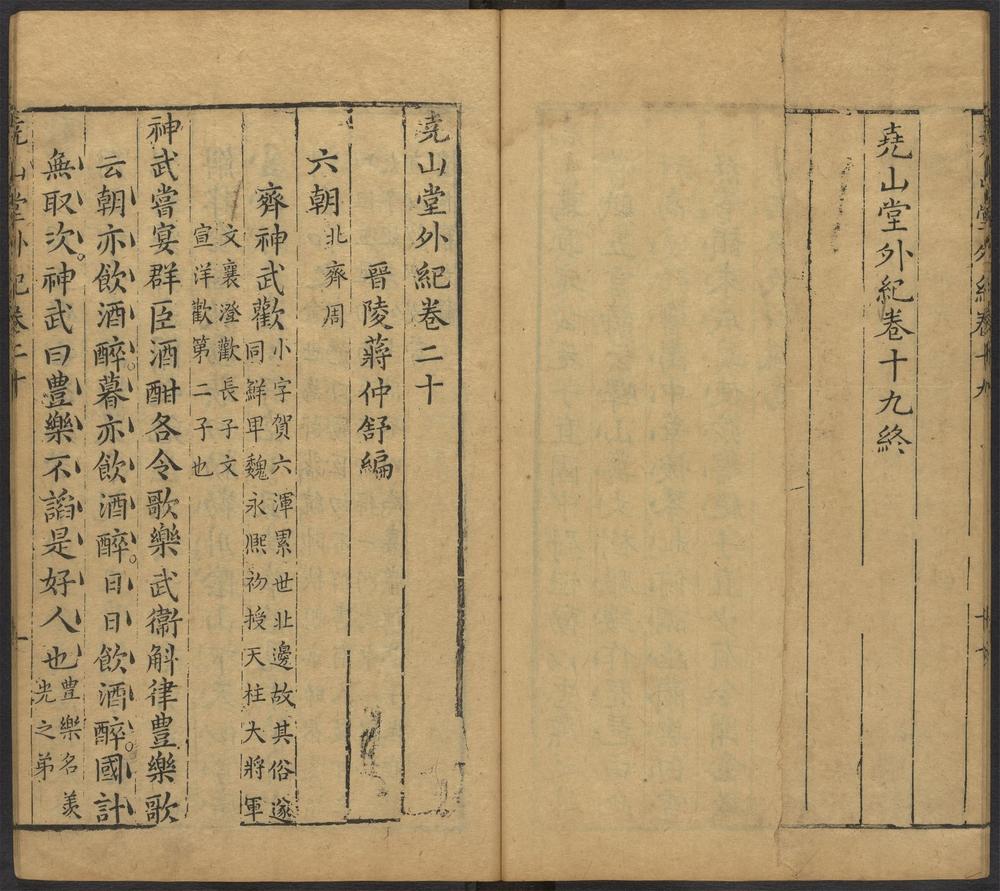 堯山堂外紀卷十九
堯山堂外紀卷十九終
堯山堂外紀卷二十
晉陵蔣仲舒編
六朝
北齊周
齊神武歡
小字賀六渾累世北邊故其俗遂
同鮮卑魏永熈初授天柱大將軍
文襄澄歡長子文
宣洋歡第二子也
神武嘗宴群臣酒酣各令歌樂武衛斛律豊樂歌
云朝亦飲酒醉。暮亦飲酒醉。日日飲酒醉。國計
無取次。神武曰豊樂不謟是好人也
豊樂名羨
光之弟
堯山堂外紀卷二十
一